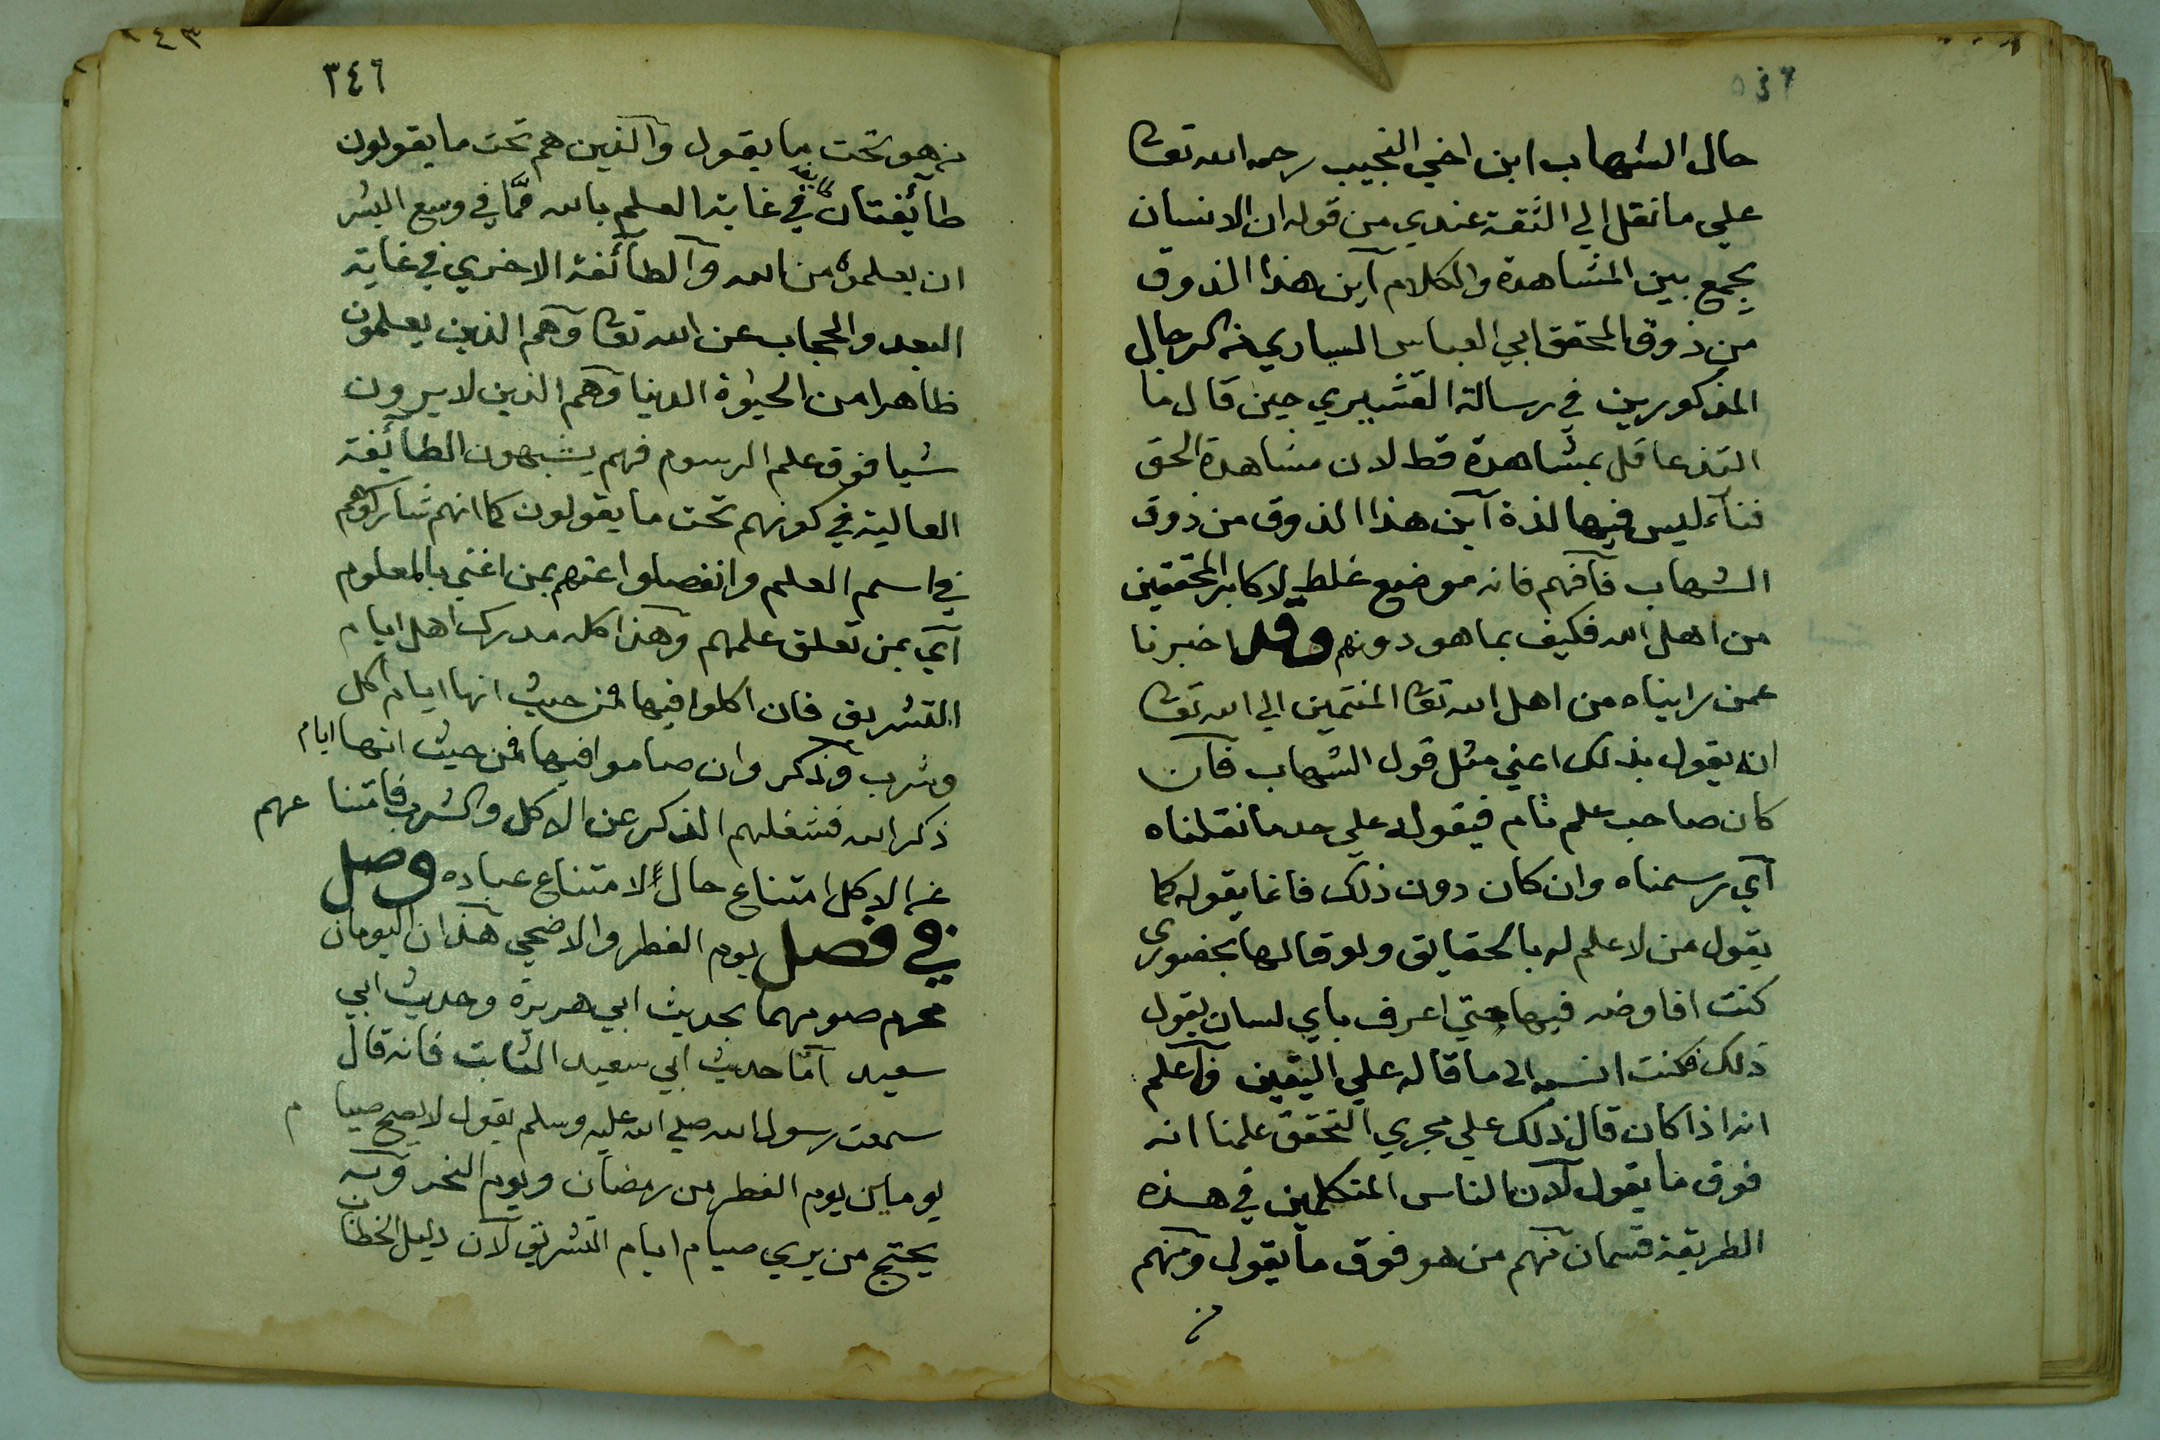 حال الشهاب ابن اخي النجيب رحمه الله تعا
علي ما نقل الي الثقة عندي من قوله ان الانسان
يجمع بين المشاهدة والكلام آين هذا الذوق
من ذوق المحقق ابي العباس السياري من الرجال
المذكورين في رسالة القشيري حين قال ما
التذ عاقل بمشاهدة قط لان مشاهدة الحق
فنآء ليس فيها لذة آين هذا الذوق من ذوق
الشهاب فآفهم فانه موضع غلط لاكابر المحققين
من اهل الله فكيف بما هو دونهم وقد اخبرنا
عمن رايناه من اهل الله تعا المنتمين الي الله تعا
انه يقول بذلك اعني مثل قول الشهاب فآن
كان صاحب علم تام فيقوله علي حد ما نقلناه
آي رسمناه وان كان دون ذلك فانما يقوله كما
يقول من لا علم له بالحقايق ولو قالها بحضوري
كنت افاوضه فيها حتي اعرف باي لسان يقول
ذلك فكنت انسبه الى ما قاله علي اليقين فآعلم
انه اذا كان قال ذلك علي مجري التحقق علمنا انه
فوق ما يقول لآن الناس المتكلمين في هذه
الطريقة قسمان منهم من هو فوق ما يقول ومنهم
من
٣٤٦
من هو تحت ما يقول وآلذين هم تحت ما يقولون
طآئفتان طايفة في غاية العلم بالله مما في وسع البشر
ان يعلموه من الله وآلطآئفة الاخري في غاية
البعد والحجاب عن الله تعا وهم الذين يعلمون
ظاهرا من الحيوة الدنيا وهم الذين لا يرون
شيا فوق علم الرسوم فهم يشبهون الطآئفة
العالية في كونهم تحت ما يقولون كما انهم شاركوهم
في اسم العلم وانفصلوا عنهم بمن اعني بالمعلوم
آي بمن تعلق علمهم وهذا كله مدرك اهل ايام
التشريق فان اكلوا فيها فمن حيث انها ايام اكل
وشرب وذكر وان صاموا فيها فمن حيث انها ايام
ذكر الله فشغلهم الذكر عن الاكل والشرب فامتنا عهم
عن الاكل امتناع حال لا امتناع عباده وصل
في فصل يوم الفطر والاضحي هذان اليومان
محرم صومهما بحديث ابي هريرة وحديث ابي
سعيد آما حديث ابي سعيد الثابت فانه قال
سمعت رسول الله صلي الله عليه وسلم يقول لا يصح صيا م
يومين يوم الفطر من رمضان ويوم النحر وبه
يحتج من يري صيام ايام التشريق لآن دليل الخطاب